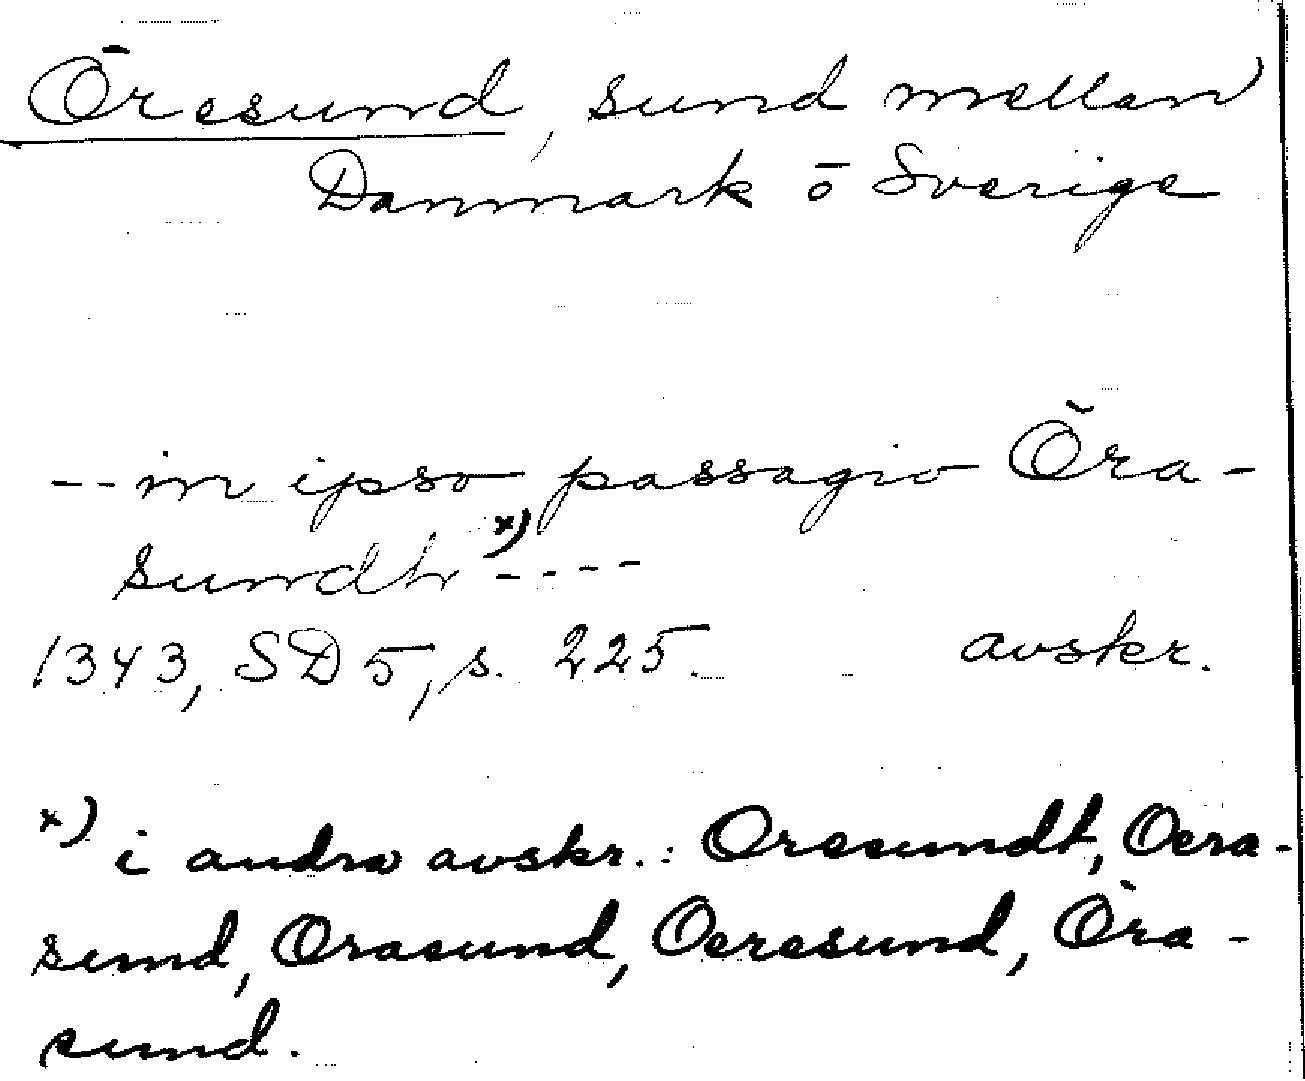 Öresund, sund mellan
Danmark o Sverige
-- in ipso passagio Öra-
sundh x) ----
1343, SD 5, s. 225. avskr.
x) i andra avskr.: Oresundt, Oera-
sund, Orasund, Oeresund, Öra-
sund.